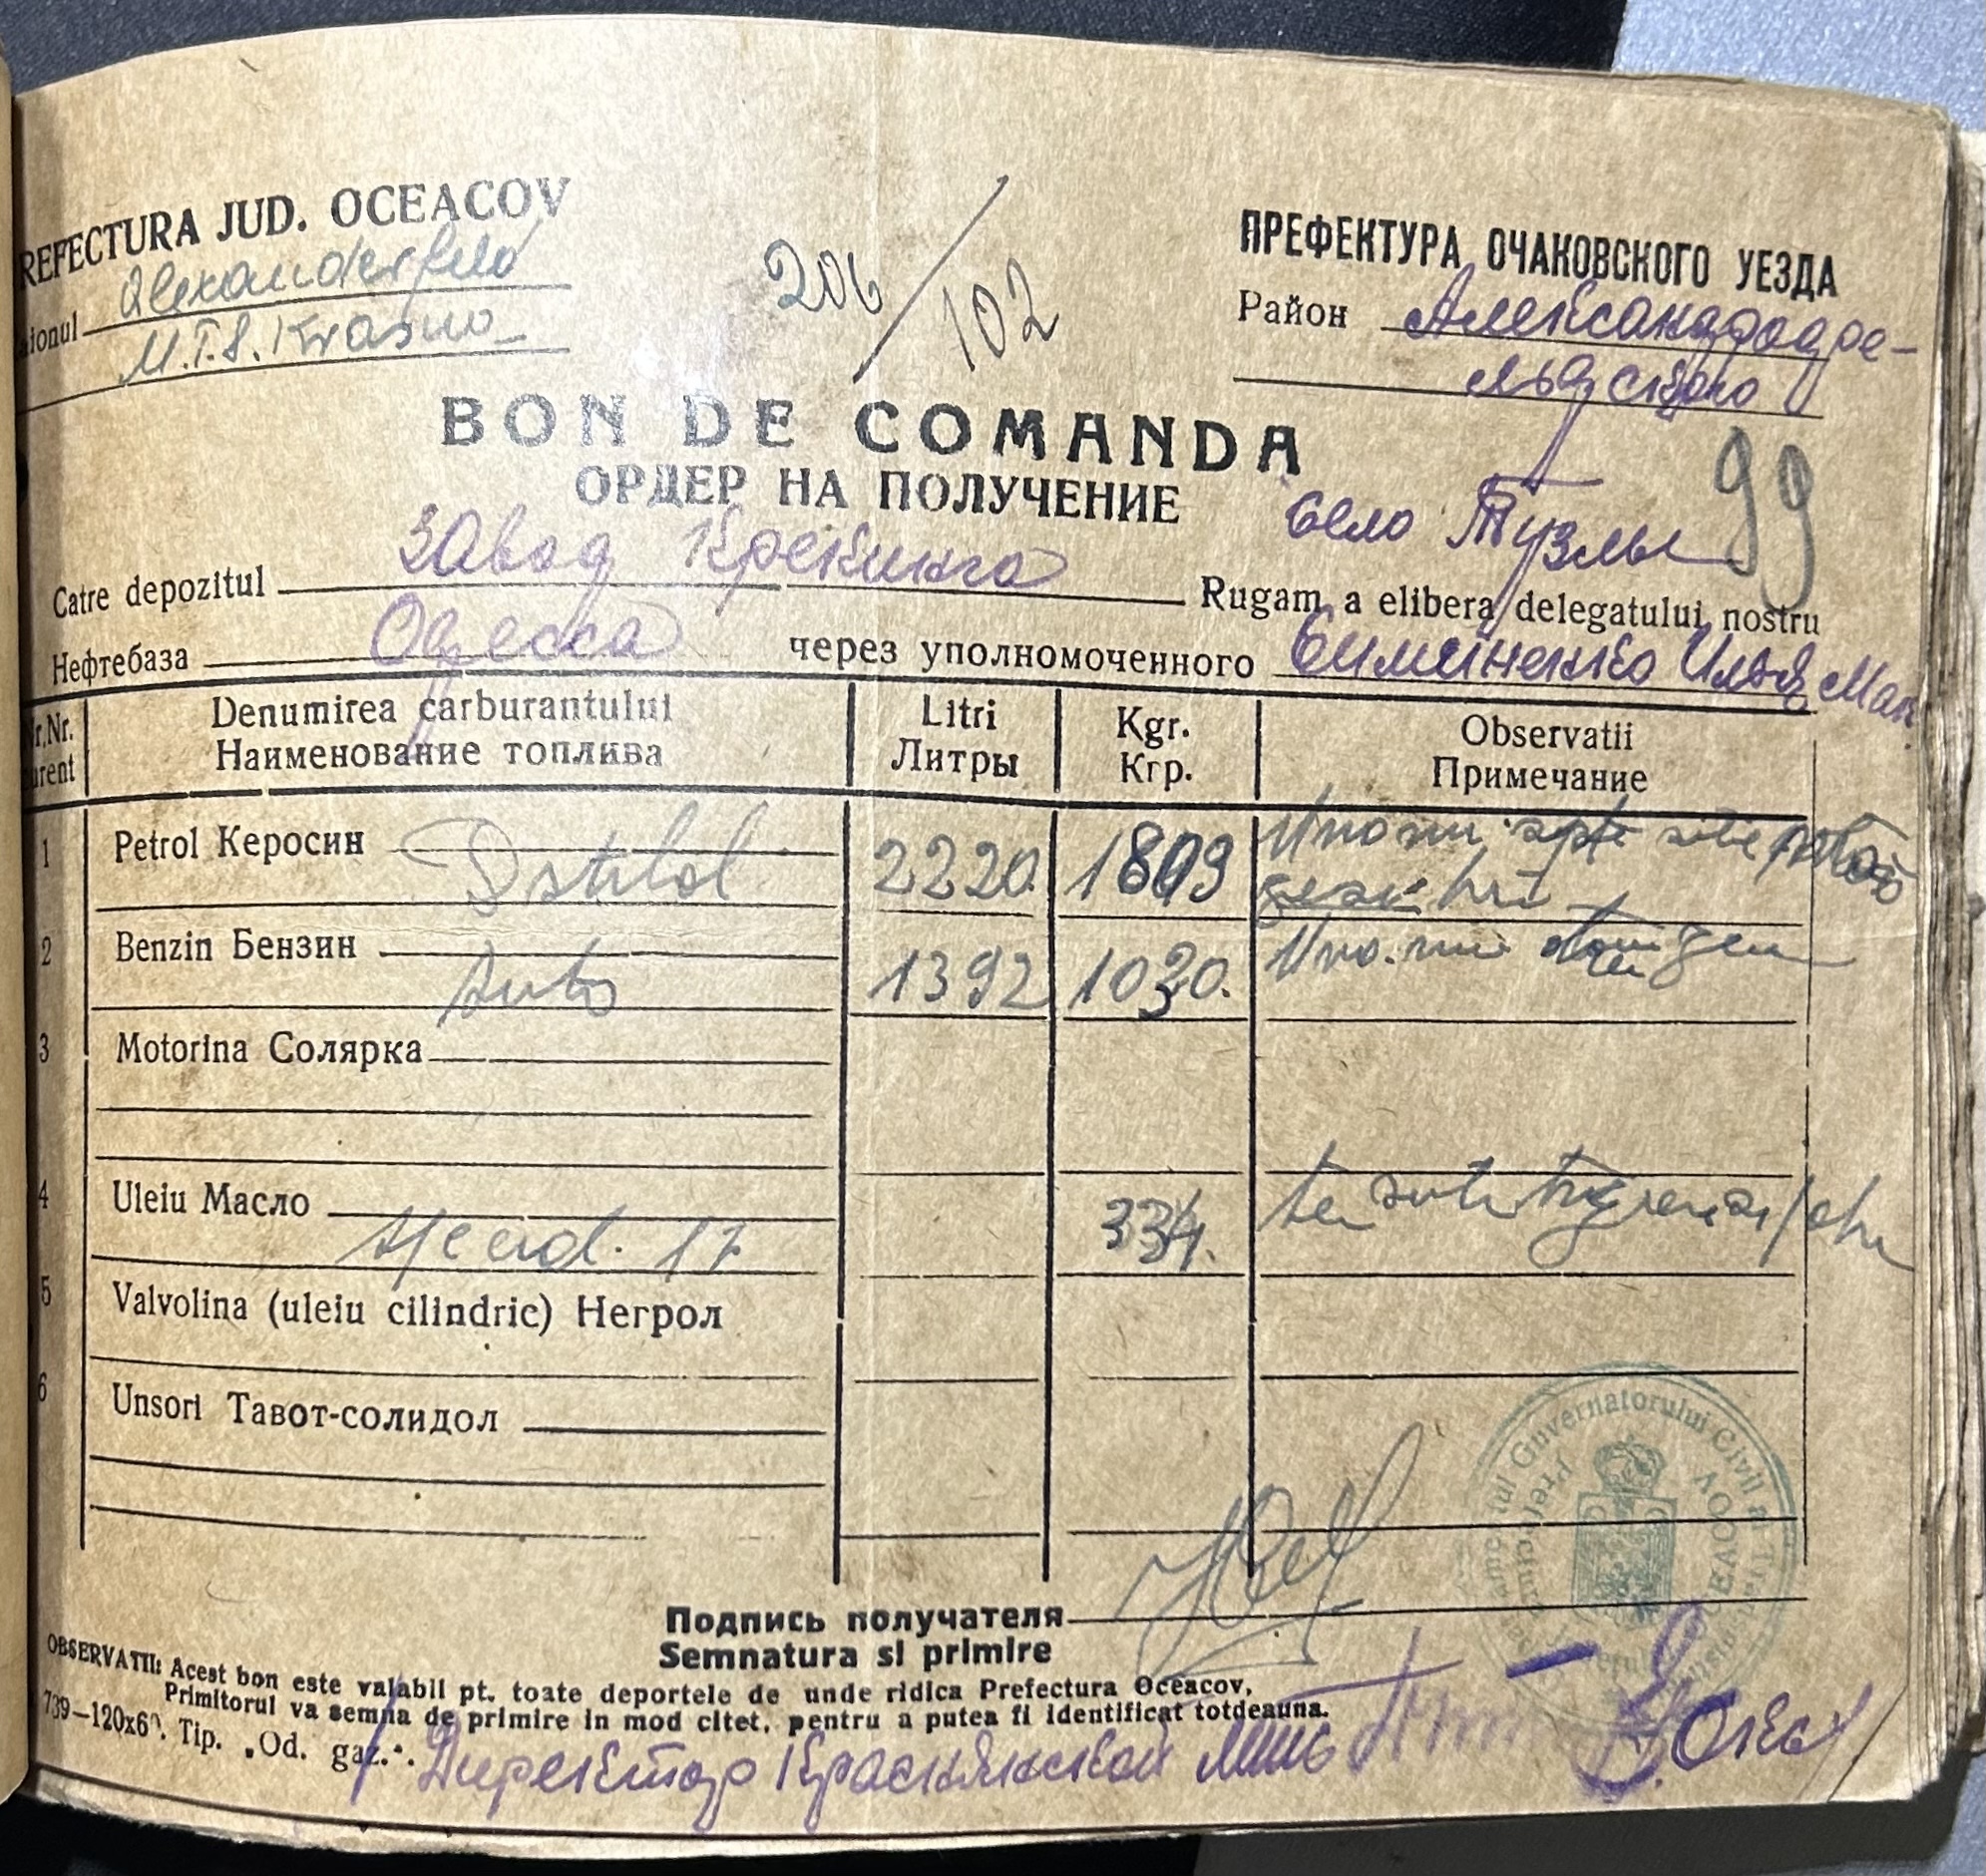 REFECTURA JUD. OCEACOV
ionul Alexanderfeld
M.T.S. Krasno
206/102
ПРЕФЕКТУРА ОЧАКОВСКОГО УЕЗДА
Район Александрфе-
льдского
99
BON DE COMANDA
ОРДЕР НА ПОЛУЧЕНИЕ
село Тузлы
Catre depozitul Завод Крекинга Rugam a elibera delegatului nostru
Нефтебаза Одесса через уполномоченного Илья
r.Nr. Denumirea carburantului Litri Kgr. Observatii
urent Наименование топлива Литры Кгр. Примечание
1 Petrol Керосин 2220
2 Benzin Бензин Auto 1392 1030.
3 Motorina Солярка
4 Uleiu Масло 17 334.
5 Valvolina (uleiu cilindric) Негрол
6 Unsori Тавот-солидол
Guvernatorului Civil al
Prefectura
OCEACOV
Подпись получателя
Semnatura si primire
OBSERVATII: Acest bon este valabil pt. toate deportele de unde ridica Prefectura Oceacov.
Primitorul va semna de primire in mod citet, pentru a putea fi identificat totdeauna.
739—120x6. Tip. „Od. gaz.".
Директор Краснянской